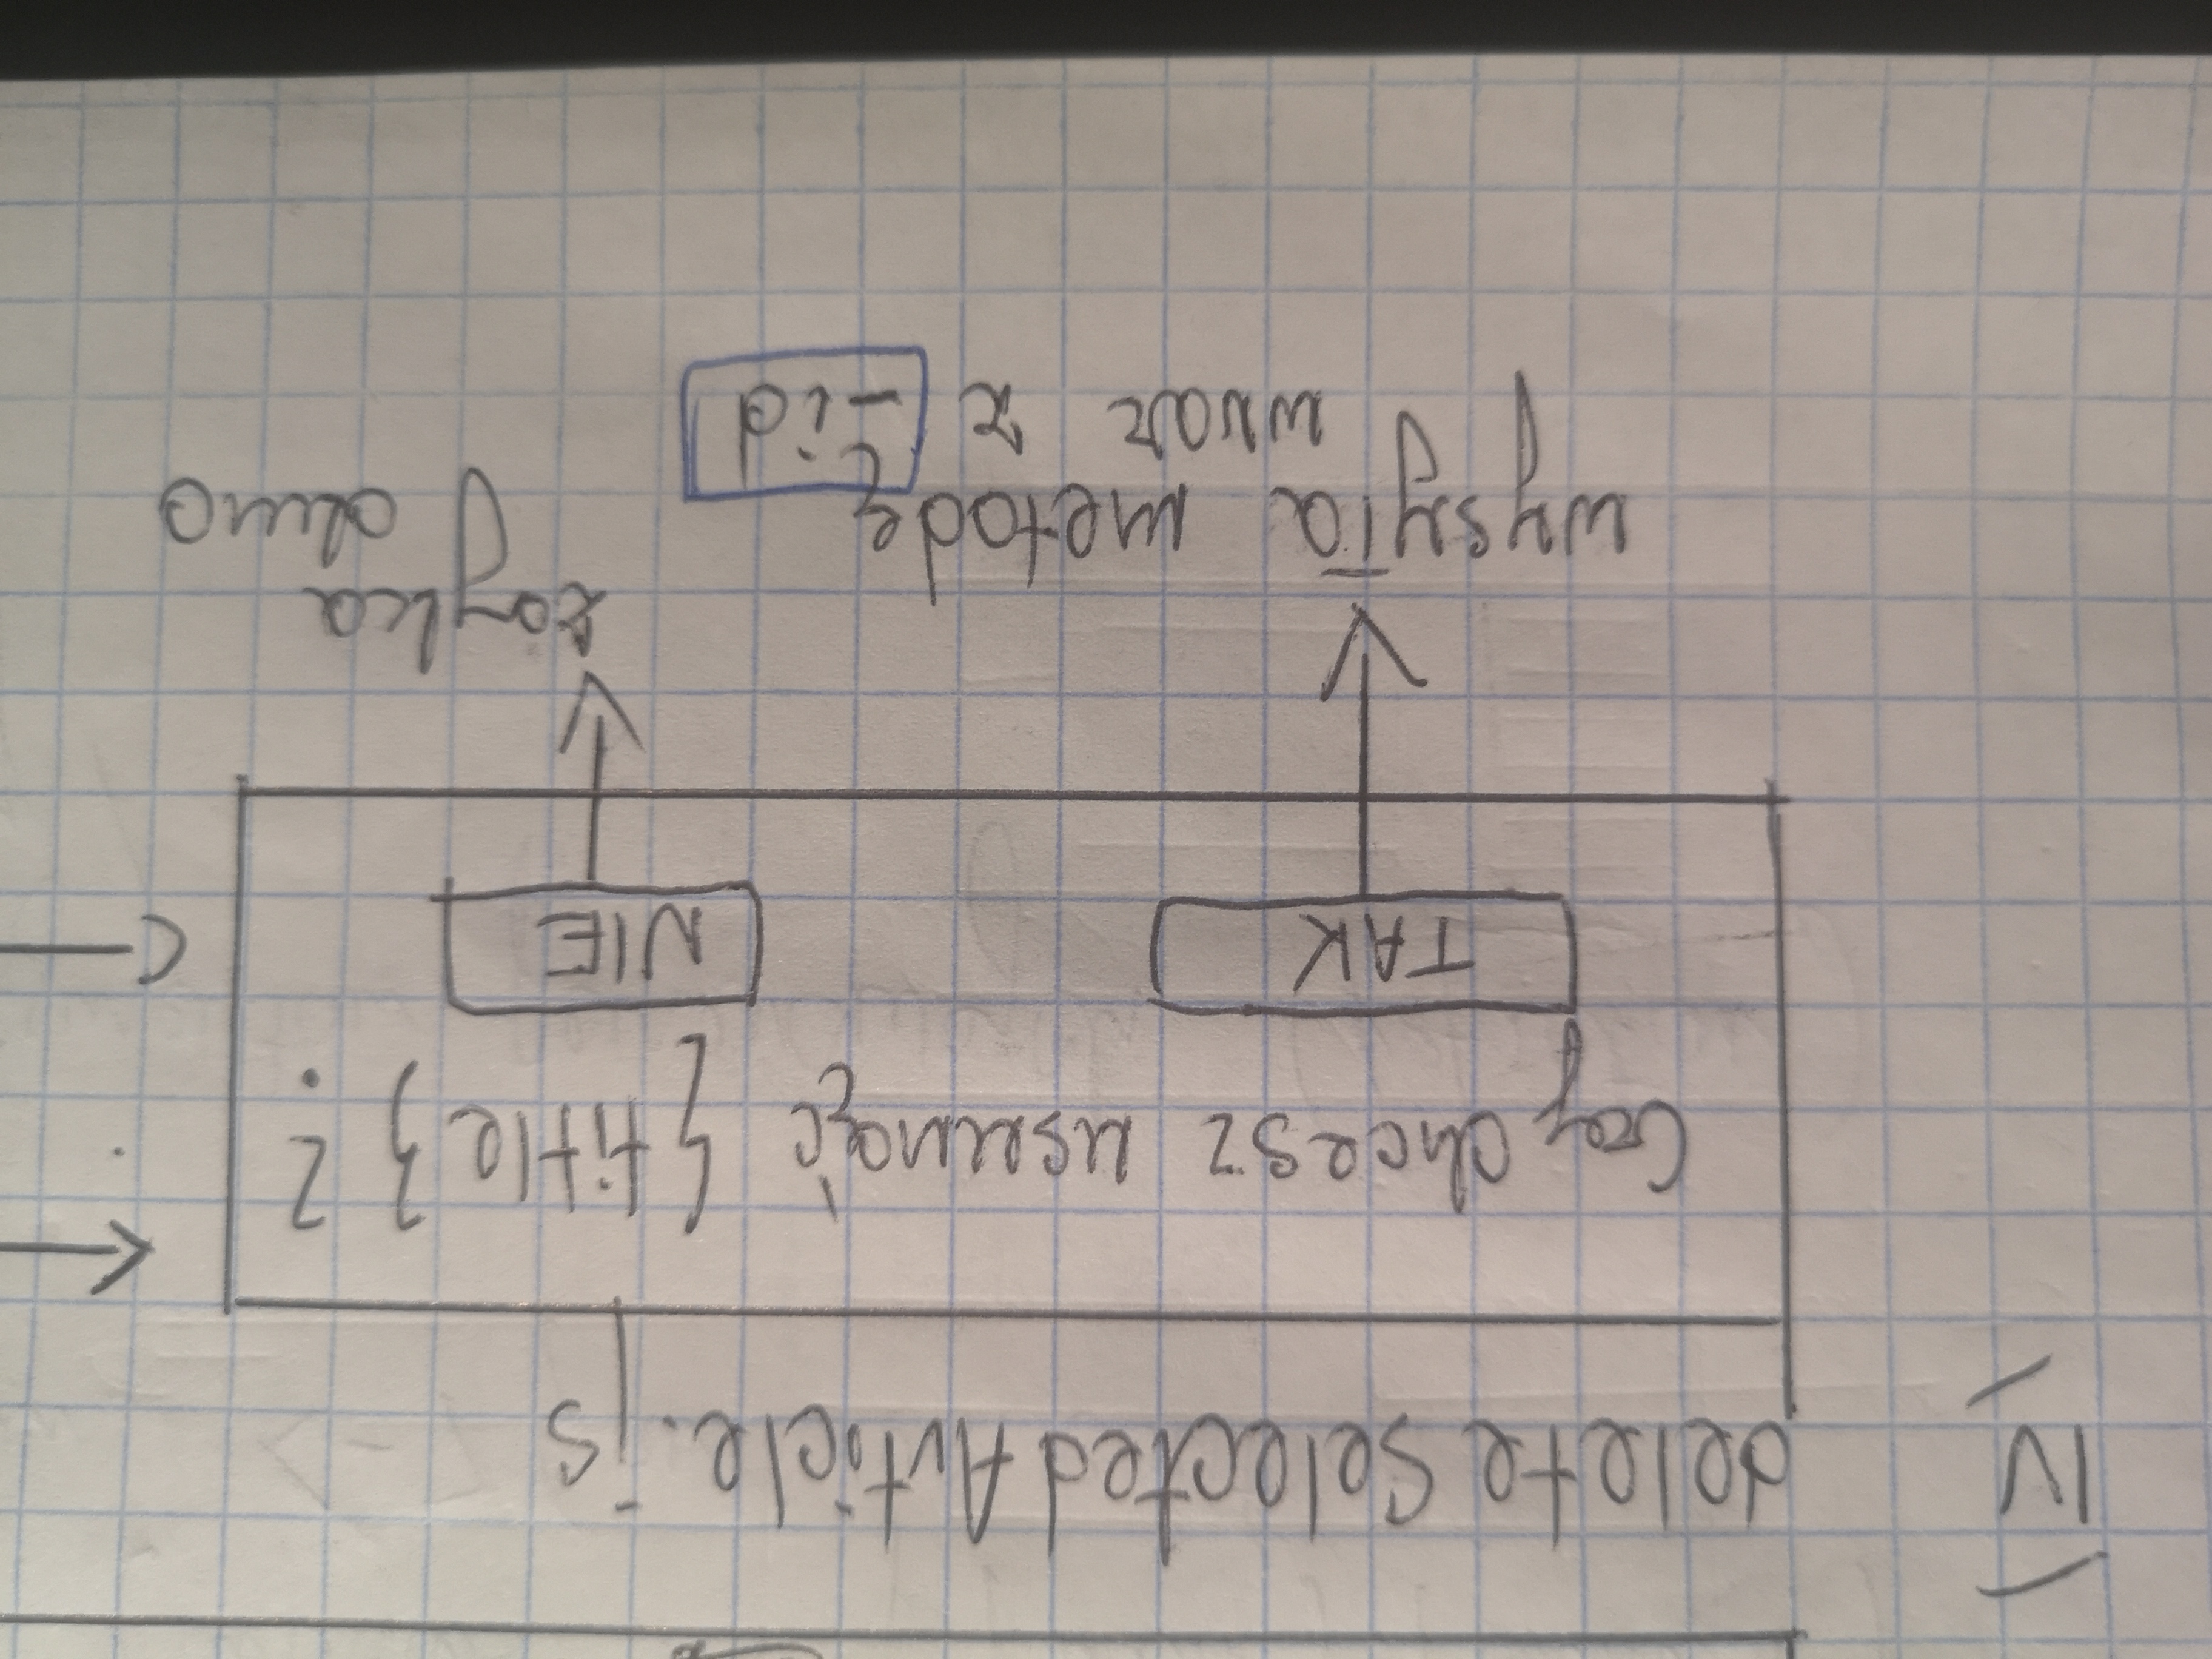 IV deleteSelectedArticle.js
Czy chcesz usunąć {title}?
TAK NIE
wysyła metodę
wraz z _id
okno